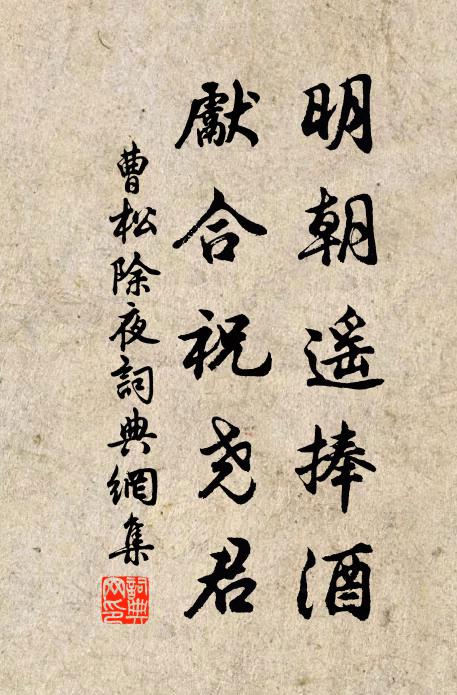 明朝遥捧酒
獻合祝尧君
曹松除夜詞典網集
詞典网印